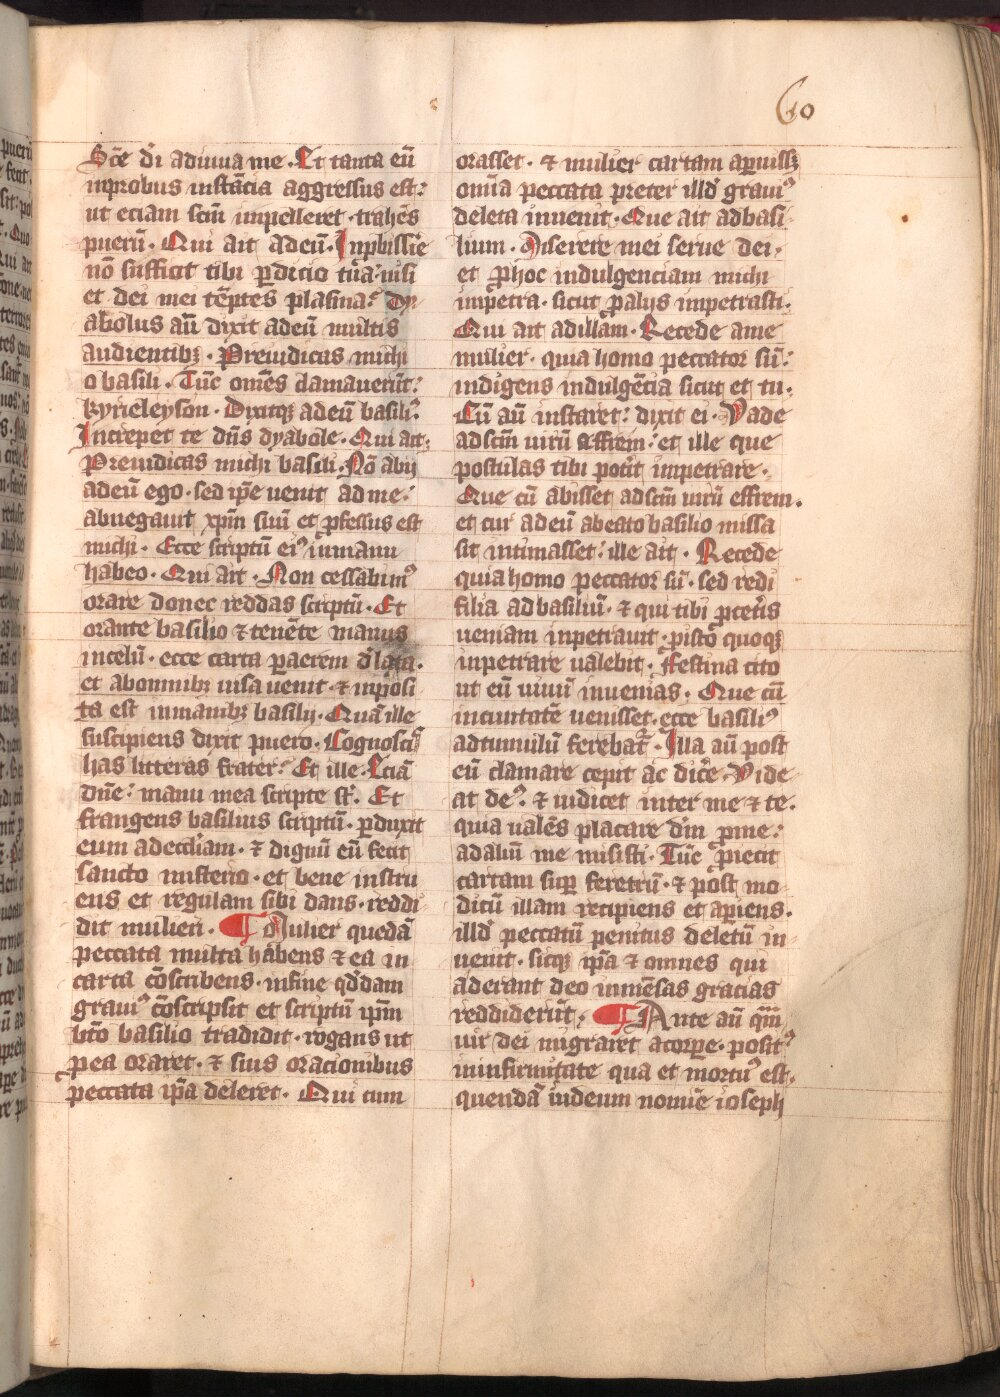 60
Sc̄e d̄i adiuua me. Et tanta eū
inprobus instācia aggressus est:
ut eciam sc̄m impelleret. trahēs
puerū. Qui ait ad eū. Inpbissīe
nō sufficit tibi pdicio tūa: nisi
et dei mei tēptes plasma: Dy
abolus aū dixit ad eū multis
audientibꝫ. Preiudicas michi
o basili. Tūc omēs clamauerūt:
kyrieleyson. Dixitqꝫ ad eū basiliꝰ.
Increpet te dn̄s dyabole. Qui ait.
Preiudicas michi basili. Nō abij
ad eū ego. sed ip̄e uenit ad me:
abnegauit xp̄m suū et pfessus est
michi. Ecce scriptū eiꝰ in manu
habeo. Qui ait. Non cessabimꝰ
orare donec reddas scriptū. Et
orante basilio ⁊ tenēte manus
in celū. ecce carta p aerem d̄lata.
et ab omnibꝫ uisa uenit. ⁊ inposi
ta est in manibꝫ basilij. Quā ille
suscipiens dixit puero. Cognoscis
has litteras frater: Et ille. Eciā
dn̄e: manu mea scripte s̄t. Et
frangens basilius scriptū. pduxit
eum ad eccl̄iam. ⁊ dignū eū fecit
sancto misterio. et bene instru
ens et regulam sibi dans. reddi
dit mulieri. ¶ Mulier quedā
peccata multa habens ⁊ ea in
carta cōscribens. in fine qd̄dam
grauiꝰ cōscripsit et scriptū ip̄m
bt̄o basilio tradidit. rogans ut
p ea oraret. ⁊ suis oracionibus
peccata ip̄a deleret. Qui cum
orasset. ⁊ mulier cartam apuissꝫ
om̄ia peccata preter illd̄ grauiꝰ
deleta inuenit. Que ait ad basi
lium. Miserere mei serue dei.
et p hoc indulgenciam michi
inpetra. sicut p alijs impetrasti.
Qui ait ad illam. Recede a me
mulier. quia homo peccator sū:
indigens indulgēcia sicut et tu.
Cū aū instaret: dixit ei. Vade
ad sc̄m uirū effrem: et ille que
postulas tibi pot̄it impetrare.
Que cū abisset ad sc̄m uirū effrem.
et cur ad eū a beato basilio missa
sit intimasset: ille ait. Recede
quia homo peccator sū. sed redi
filia ad basiliū. ⁊ qui tibi p cet̄is
ueniam inpetrauit. p isto quoqꝫ
inpetrare ualebit. Festina cito
ut eū uiuū inuenias. Que cū
in ciuitatē uenisset. ecce basiliꝰ
ad tumulū ferebat᷑. Illa aū post
eū clamare cepit ac dic̄e. Vide
at deꝰ. ⁊ iudicet inter me ⁊ te.
quia ualēs placare dm̄ p me:
ad aliū me misisti. Tūc piecit
cartam sup feretrū. ⁊ post mo
dicū illam recipiens et apiens.
illd̄ peccatū penitus deletū in
uenit. sicqꝫ ip̄a ⁊ omnes qui
aderant deo inmēsas gracias
reddiderūt. ¶ Ante aū qm̄
uir dei migraret a corpe. positꝰ
in infirmitate qua et mortuꝰ est.
quendā iudeum nomīe ioseph